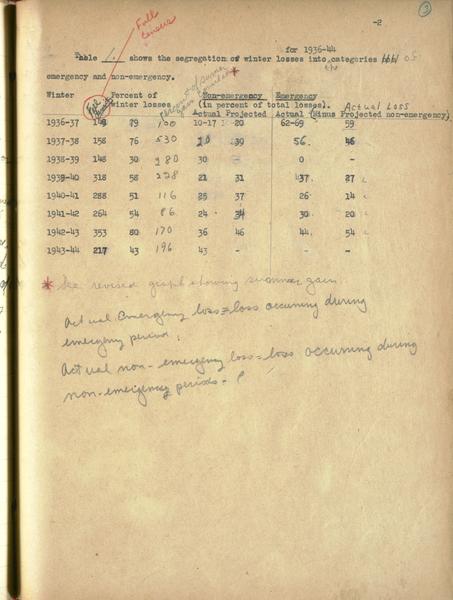 3
-2
Fall census
for 1936-44
Table 1. shows the segregation of winter losses into the categories of
emergency and non-emergency.
Winter Percent of Non-emergency Emergency
winter losses (in percent of total losses). Actual Loss
Actual Projected Actual (Minus Projected non-emergency)
1936-37 79 100 10-17 20 62-69 59
1937-38 158 76 530 39 56 46
1938-39 148 30 280 30 - 0 -
1939-40 318 58 228 21 31 37 27
1940-41 288 51 116 25 37 26 14
1941-42 264 54 86 24 34 30 20
1942-43 353 80 170 36 46 44 54
1943-44 217 43 196 43 - - -
* See revised graph showing summer gain.
Actual Emergency loss = loss occurring during
emergency period;
Actual non-emergency loss = loss occurring during
non-emergency periods.